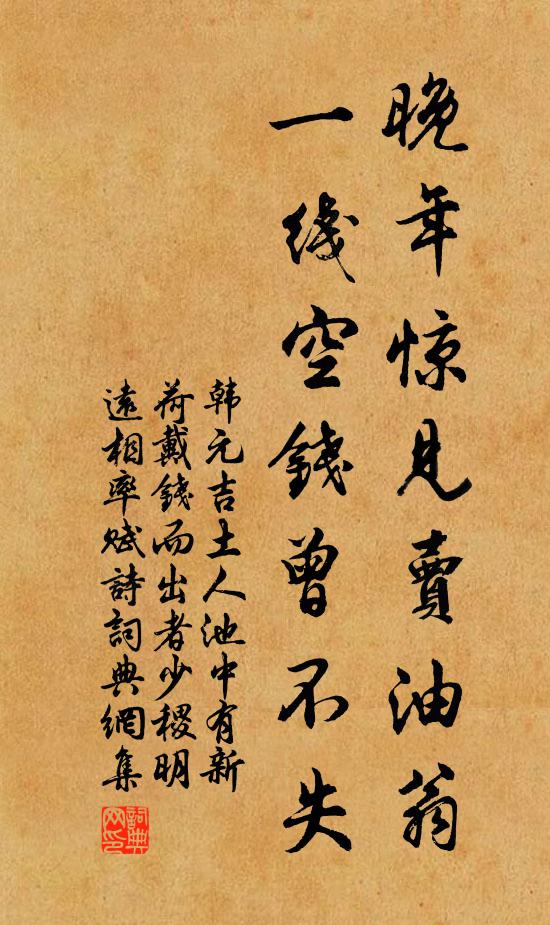 晚年惊见賣油翁
一线空錢曾不失
韩元吉土人池中有新
荷戴錢而出者少稷明
遠相率赋詩詞典網集
詞典
网印